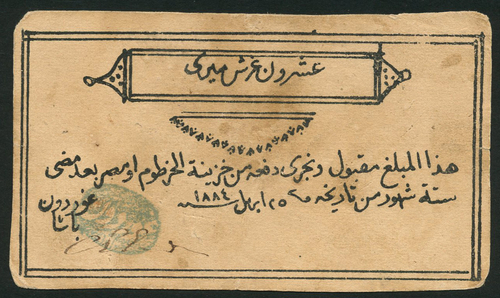 عشرون غرش ميرى
هذا المبلغ مقبول ويجرى دفعه من خزينة الخرطوم او مصر بعد مضى
ستة شهور من تاريخه ٢٥ ابريل سنة ١٨٨٤
غوردون
باشا